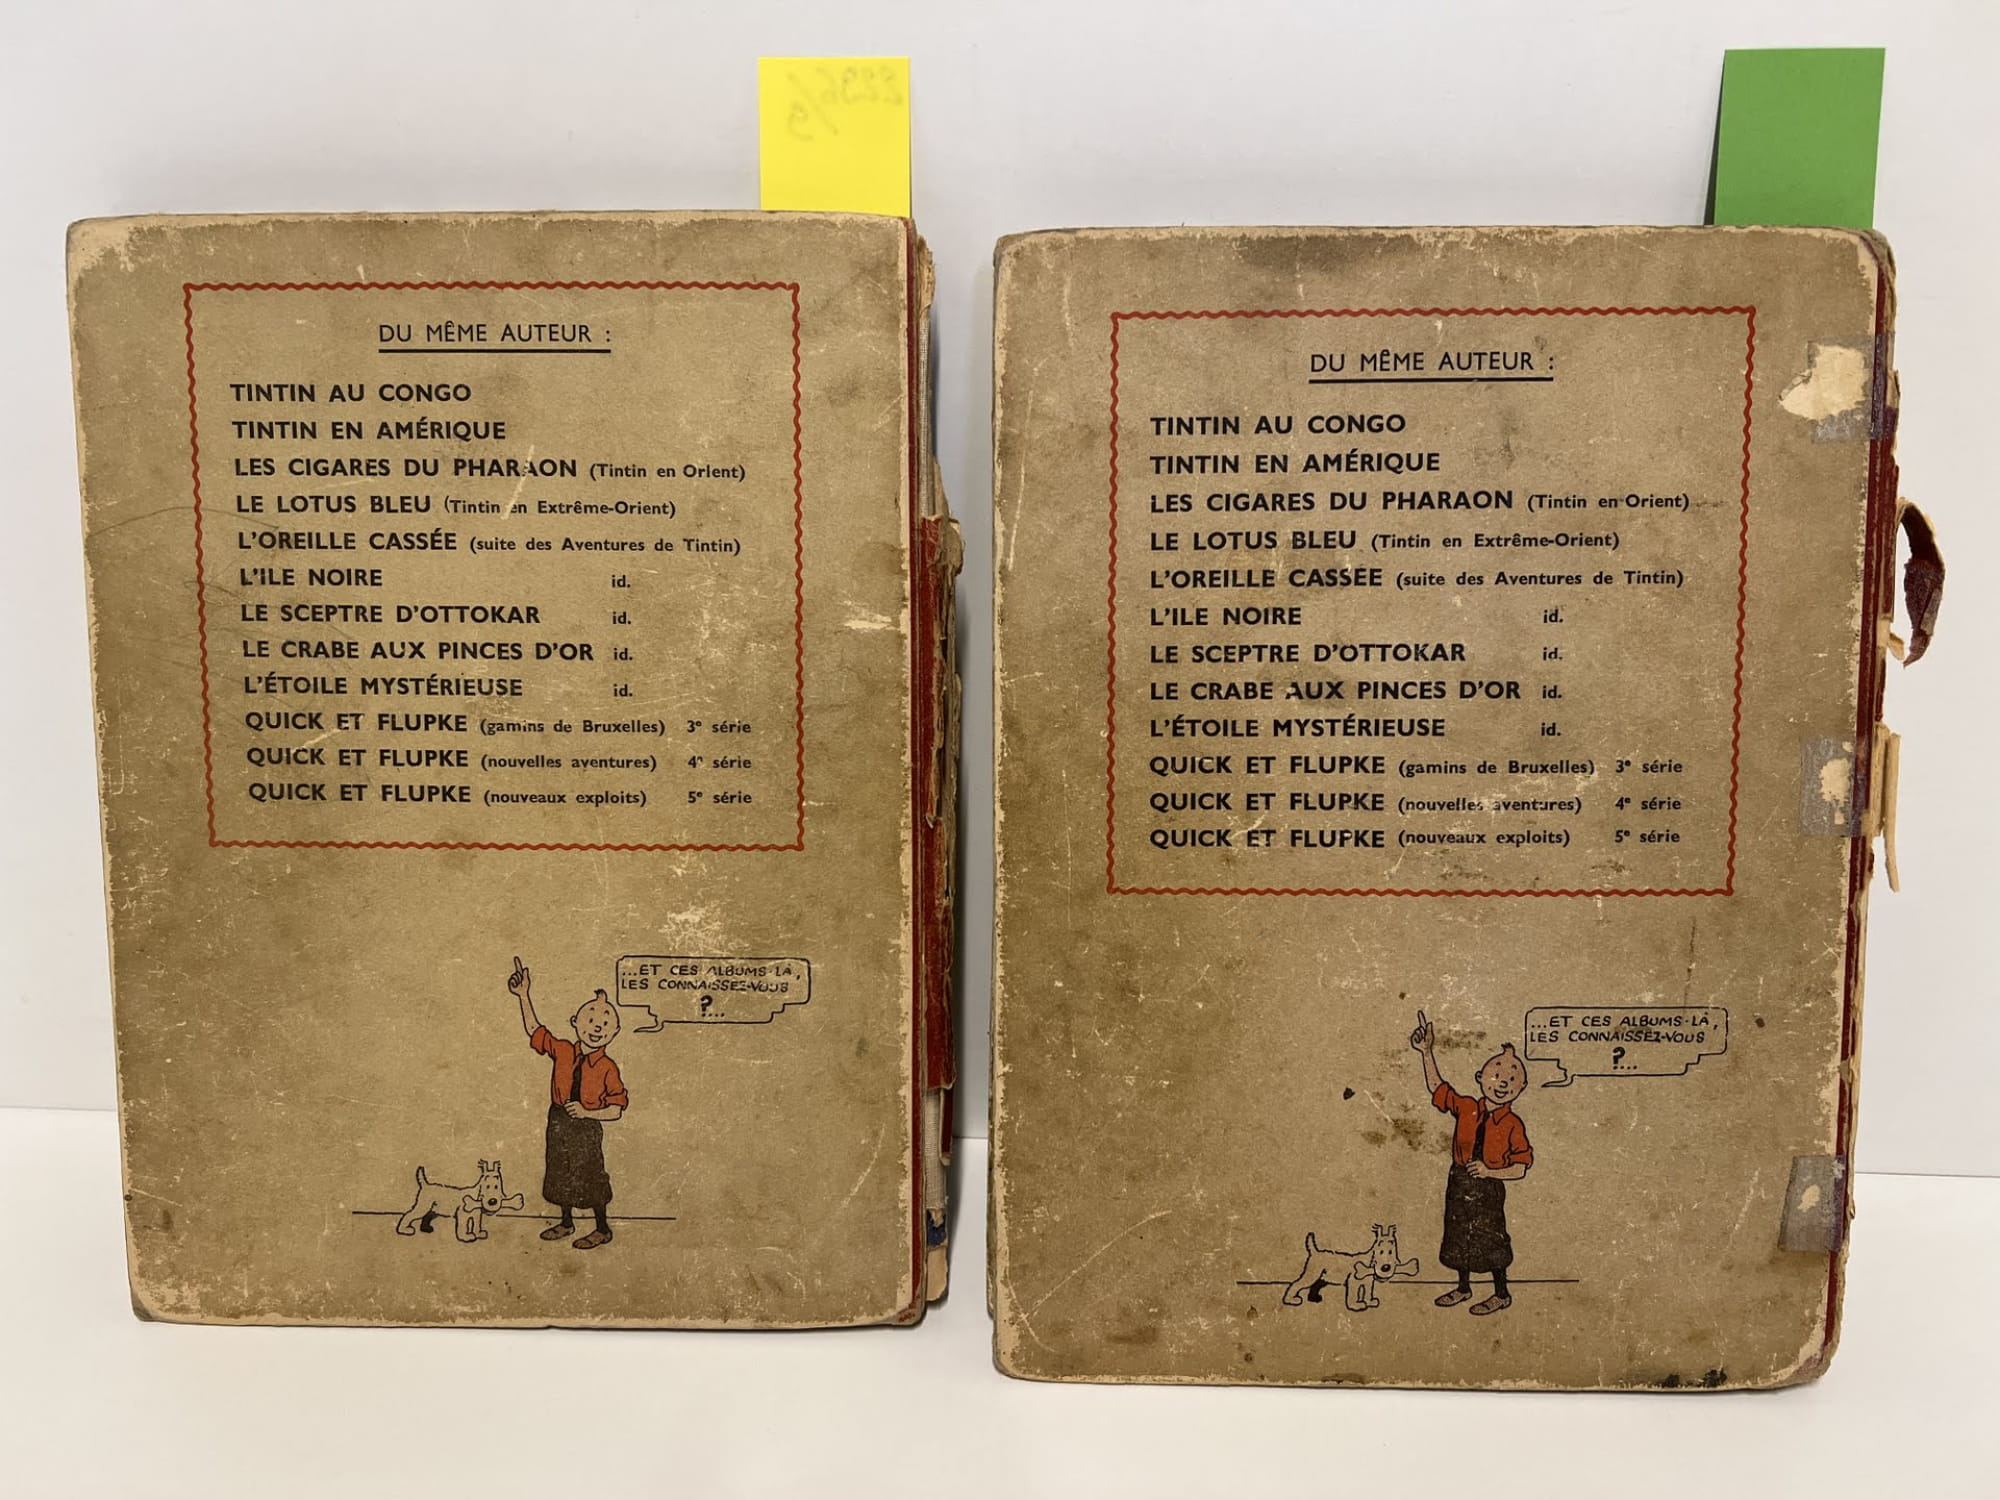 DU MÊME AUTEUR :
TINTIN AU CONGO
TINTIN EN AMÉRIQUE
LES CIGARES DU PHARAON (Tintin en Orient)
LE LOTUS BLEU (Tintin en Extrême-Orient)
L'OREILLE CASSÉE (suite des Aventures de Tintin)
L'ILE NOIRE id.
LE SCEPTRE D'OTTOKAR id.
LE CRABE AUX PINCES D'OR id.
L'ÉTOILE MYSTÉRIEUSE id.
QUICK ET FLUPKE (gamins de Bruxelles) 3e série
QUICK ET FLUPKE (nouvelles aventures) 4e série
QUICK ET FLUPKE (nouveaux exploits) 5e série
...ET CES ALBUMS-LÀ,
LES CONNAISSEZ-VOUS
?...
DU MÊME AUTEUR :
TINTIN AU CONGO
TINTIN EN AMÉRIQUE
LES CIGARES DU PHARAON (Tintin en Orient)
LE LOTUS BLEU (Tintin en Extrême-Orient)
L'OREILLE CASSÉE (suite des Aventures de Tintin)
L'ILE NOIRE id.
LE SCEPTRE D'OTTOKAR id.
LE CRABE AUX PINCES D'OR id.
L'ÉTOILE MYSTÉRIEUSE id.
QUICK ET FLUPKE (gamins de Bruxelles) 3e série
QUICK ET FLUPKE (nouvelles aventures) 4e série
QUICK ET FLUPKE (nouveaux exploits) 5e série
...ET CES ALBUMS-LÀ,
LES CONNAISSEZ-VOUS
?...